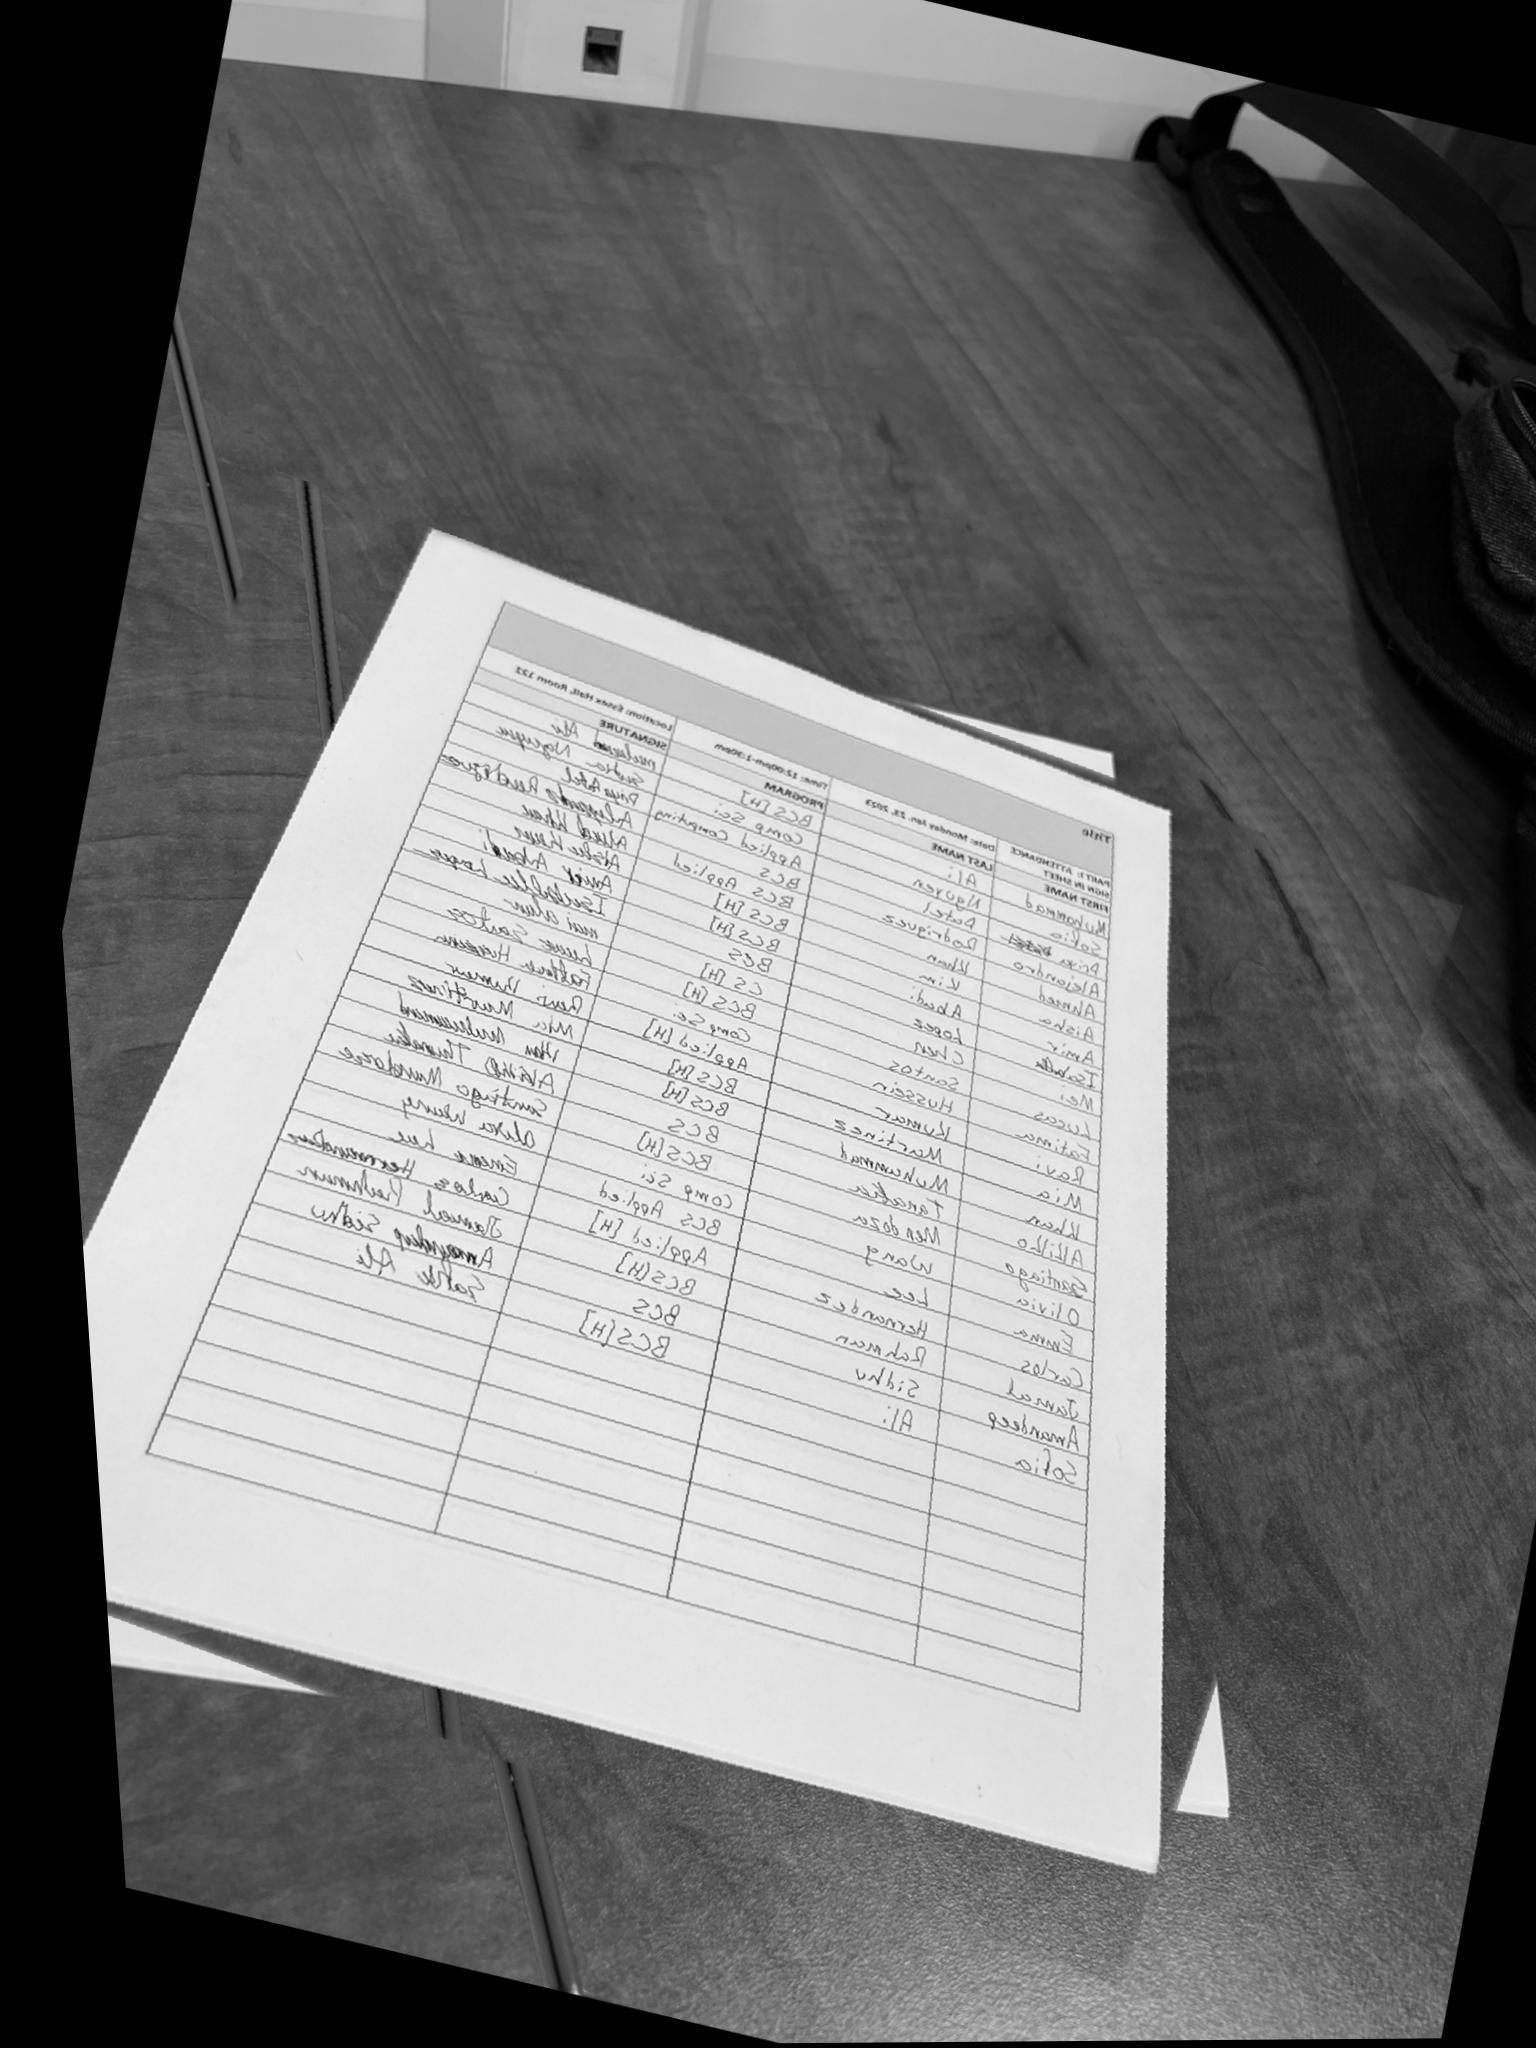 Title
PART1: ATTENDANCE SIGN IN SHEET Date: Monday Jan. 23, 2023 Time: 12:00pm-1:30pm Location: Essex Hall, Room 122
FIRST NAME LAST NAME PROGRAM SIGNATURE
Muhammad Ali BCS [H] Ali
Sofia Nguyen Comp Sci Sofia Nguyen
Priya Patel Applied Computing Priya Patel
Alejandro Rodriguez BCS Alejandro Rodriguez
Ahmed Khan BCS Applied Ahmed Khan
Aisha Kim BCS [H]
Amir Abadi BCS[H] Amir Abadi
Isabella Lopez BCS Isabella Lopez
Mei Chen CS [H] mei chen
Lucas Santos BCS [H] Lucas Santos
Fatima Hussein Comp Sci Fatima Hussein
Ravi Kumar Applied [H] Ravi Kumar
Mia Martinez BCS[H] Mia Martinez
Khan Muhammad BCS[H] Khan Muhammad
Tanaka BCS
Santiago Mendoza BCS[H] Santiago Mendoza
Olivia Wang Comp Sci Olivia Wang
Emma Lee BCS Applied Emma Lee
Carlos Hernandez Applied [H] Carlos Hernandez
Jamal Rahman BCS[H] Jamal Rahman
Amandeep Sidhu BCS Amandeep Sidhu
Sofia Ali BCS[H] Sofia Ali